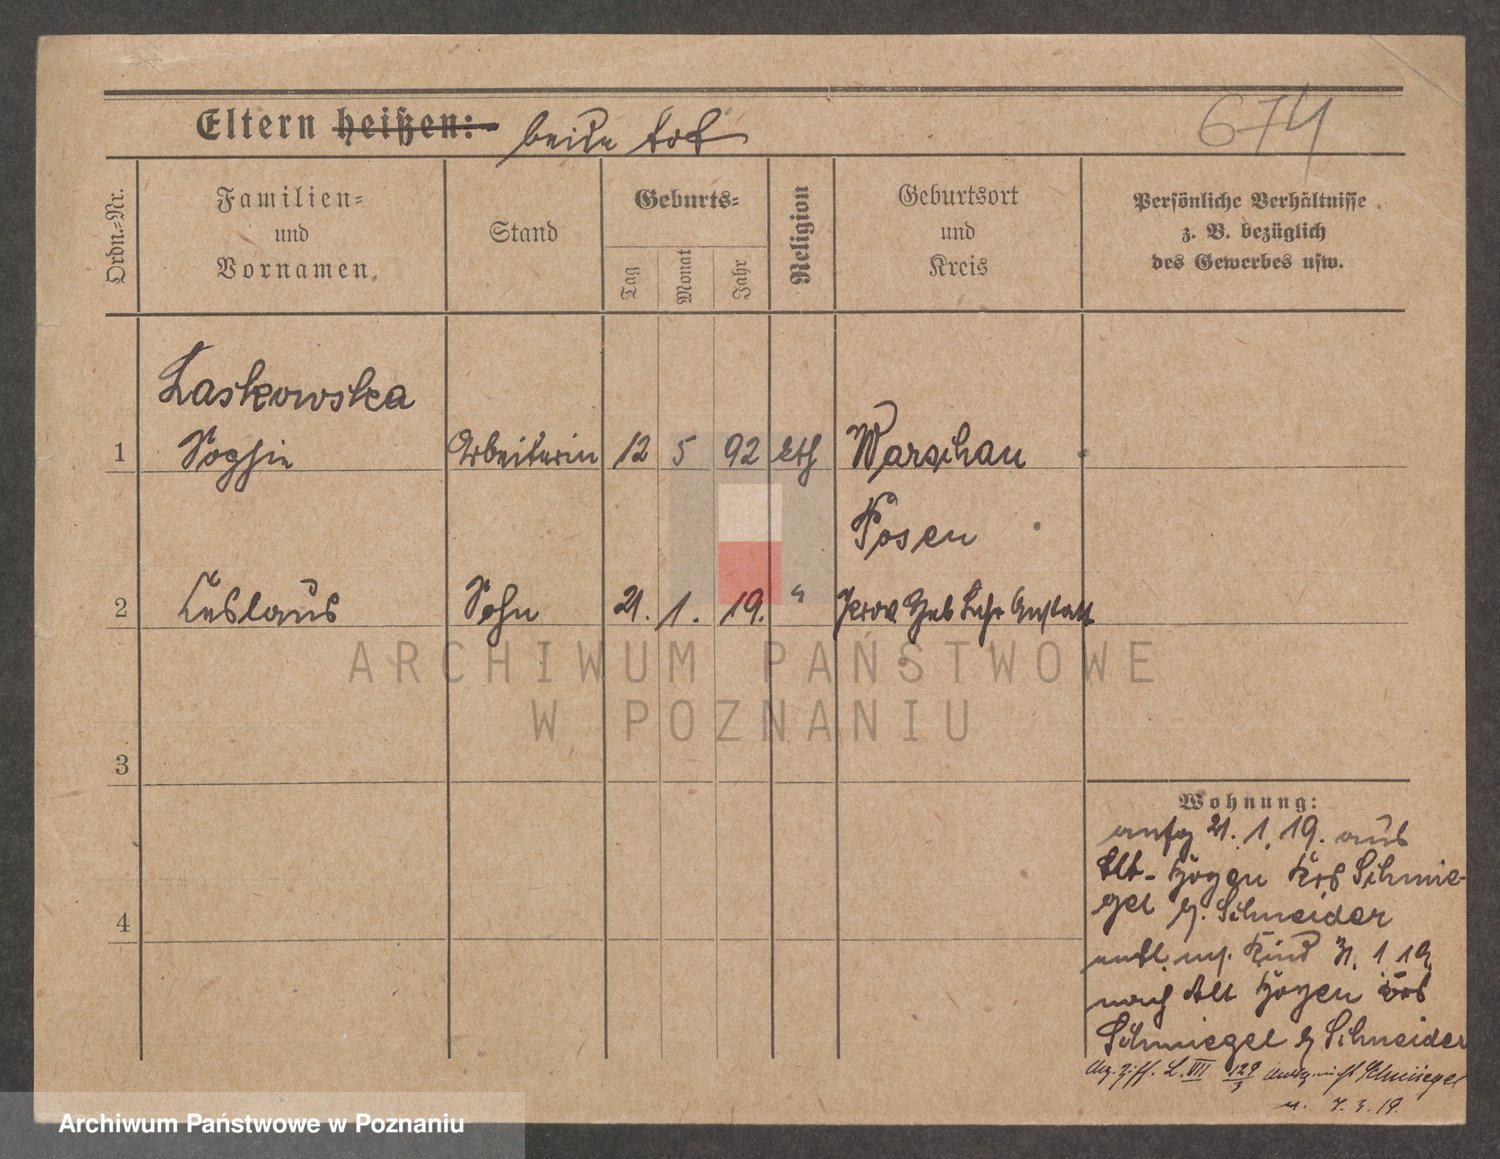 Eltern heißen: beide tot
674
Ordn.-Nr.
Familien-
und
Vornamen.
Stand
Geburts-
Tag
Monat
Jahr
Religion
Geburtsort
und
Kreis
Persönliche Verhältnisse
z. B. bezüglich
des Gewerbes usw.
Laskowska
1 Sophie Arbeiterin 12 5 92 kth Warschau
Posen
2 Ceslaus Sohn 21. 1. 19. " Prov. Heb Lehr Anstalt
3
4
Wohnung:
anfg 21. 1. 19. aus
Alt- Krs Schmie-
gel b. Schneider
entl. m. Kind 31. 1 19
nach Alt Krs
Schmiegel b Schneider
L. VII 129
Schmiegel
ARCHIWUM PAŃSTWOWE
W POZNANIU
Archiwum Państwowe w Poznaniu